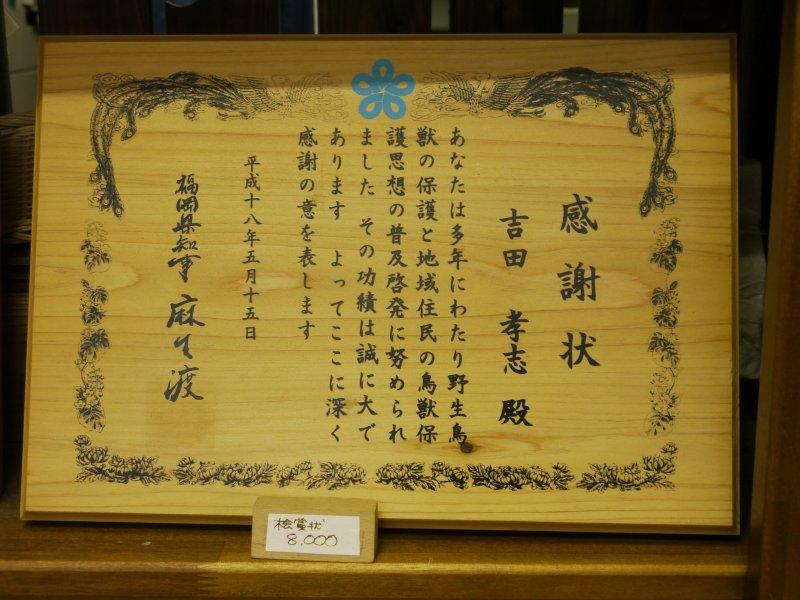 感謝状
吉田 孝志 殿
あなたは多年にわたり野生鳥
獣の保護と地域住民の鳥獣保
護思想の普及啓発に努められ
ました その功績は誠に大で
あります よってここに深く
感謝の意を表します
平成十八年五月十五日
福岡県知事 麻生渡
桧賞状
8,000